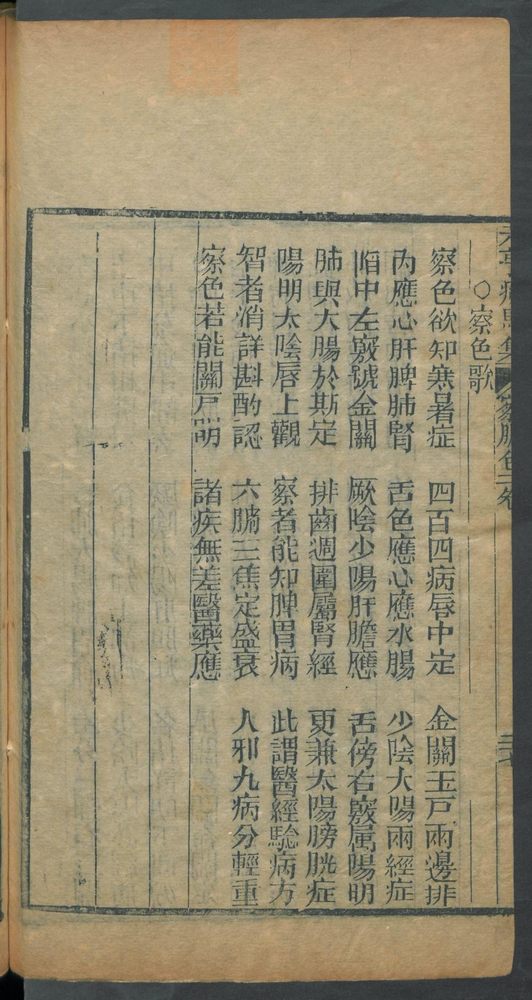 元亨療馬集 察脉色一卷 三七
○察色歌
察色欲知寒暑症 四百四病唇中定 金關玉戸兩邊排
內應心肝脾肺腎 舌色應心應水腸 少陰太陽兩經症
陷中左竅號金關 厥陰少陽肝膽應 舌傍右竅属陽明
肺與大腸於斯定 排齒週圍屬腎經 更兼太陽膀胱症
陽明太陰唇上觀 察者能知脾胃病 此謂醫經驗病方
智者消詳斟酌認 六腑三焦定盛衰 八邪九病分輕重
察色若能關戸明 諸疾無差醫藥應